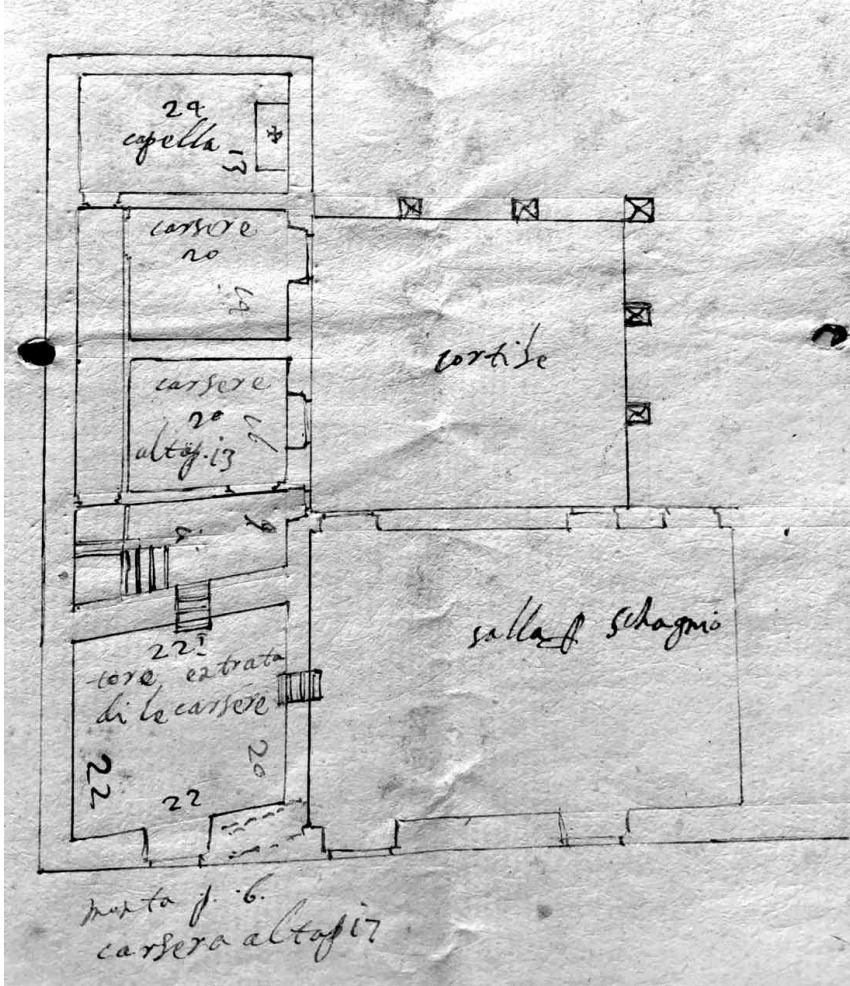 24
capella
13
carsere
20
19
cortile
carsere
20
16
alto p. 13
9
salla p
22
tore entrata
di le carsere
20
22
22
monta p. 6.
carsera alta p 17